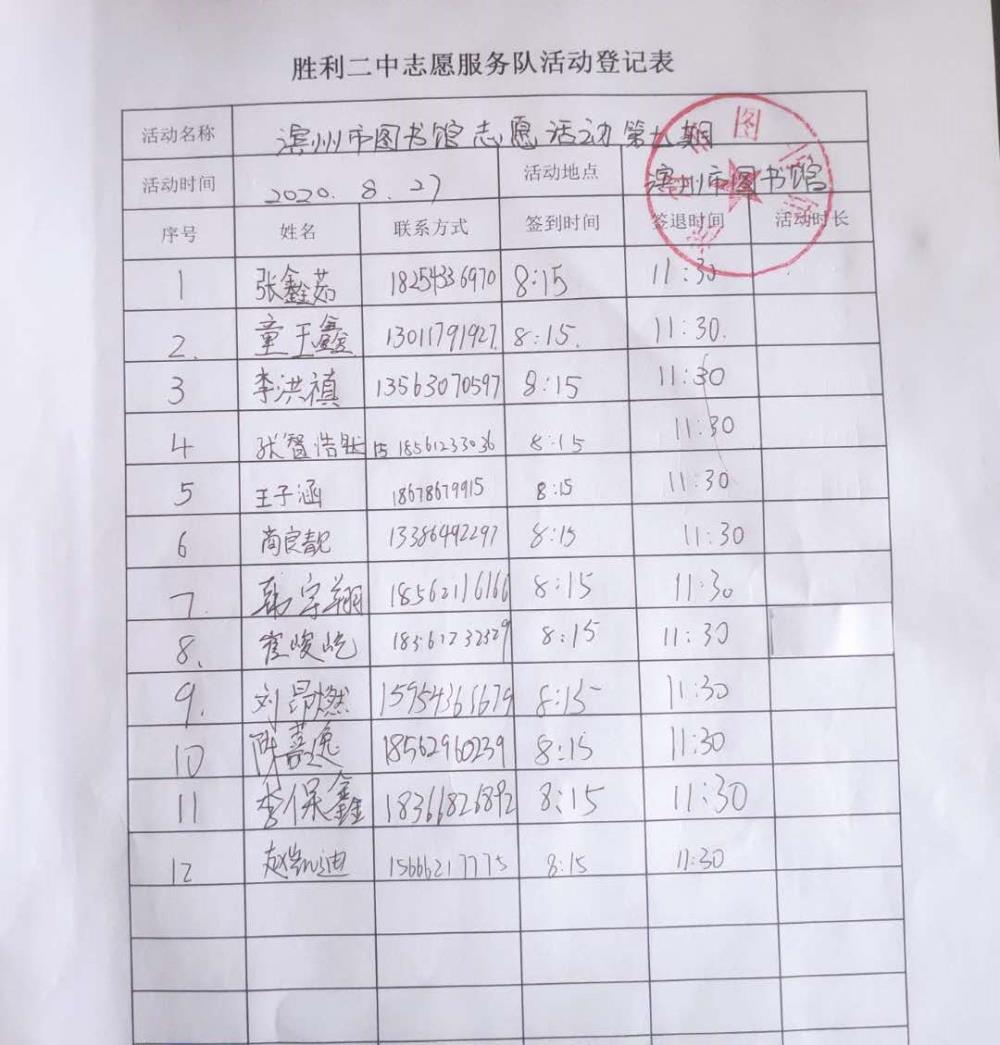 胜利二中志愿服务队活动登记表
活动名称 滨州市图书馆志愿活动第七期
活动时间 2020. 8. 27 活动地点 滨州市图书馆
序号 姓名 联系方式 签到时间 签退时间 活动时长
1 张鑫茹 18254336970 8:15 11:30
2. 童王鑫 13011791927. 8:15. 11:30.
3 李洪禛 13563070597 8:15 11:30
4 张智浩然 18561233036 8:15 11:30
5 王子涵 18678679915 8:15 11:30
6 南良靓 13386492297 8:15 11:30
7. 宇翔 18562116166 8:15 11:30
8. 崔峻屹 8:15 11:30
9. 刘昂燃 15954361679 8:15 11:30
10 陈善逸 18562960239 8:15 11:30
11 李保鑫 18366826892 8:15 11:30
12 赵凯迪 15666217775 8:15 11:30